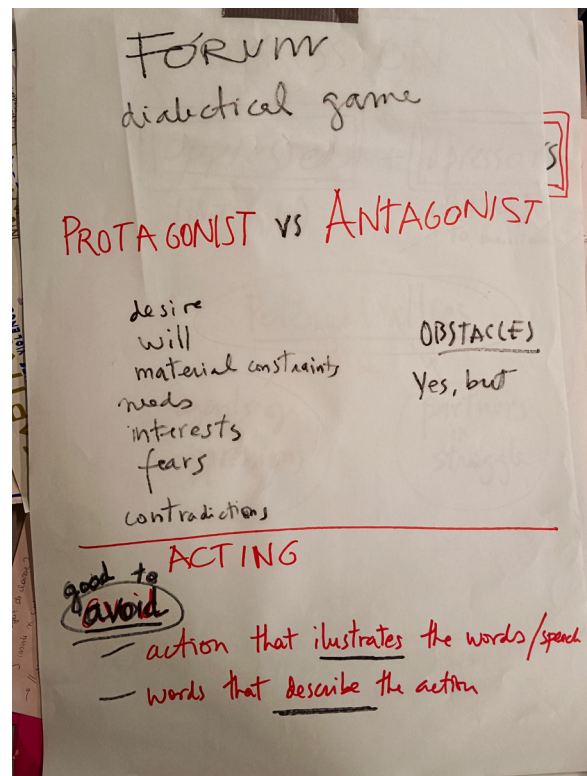 FORUM
dialectical game
PROTAGONIST vs ANTAGONIST
desire
will
material constraints
needs
interests
fears
contradictions
OBSTACLES
Yes, but
ACTING
good to
avoid
— action that ilustrates the words/speech
— words that describe the action